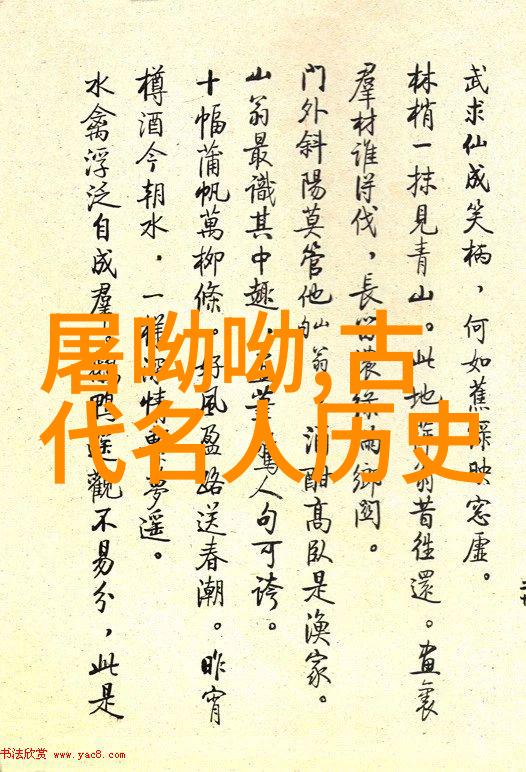 武求仙成笑柄，何如蕉綠映窓虛。
林梢一抹見青山。此地
翁昔往還。畫裏
羣材誰得伐，長留濃綠兩鄉關。
門外斜陽莫管他
仙翁
酒酣高臥是漁家。
山翁最識其中趣，
人句可誇。
十幅蒲帆萬柳條。好風盈路送春潮。昨宵
樽酒今朝水，一樣深情
夢遥。
水禽浮泛自成羣。
鴨遠觀不易分，此是
屠呦呦,古
代名人历史
书法欣赏 www.yac8.com